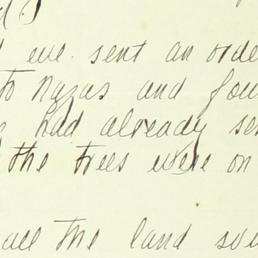 we sent an orde
to Nazas and fou
had already se
the trees were on
all the land sui